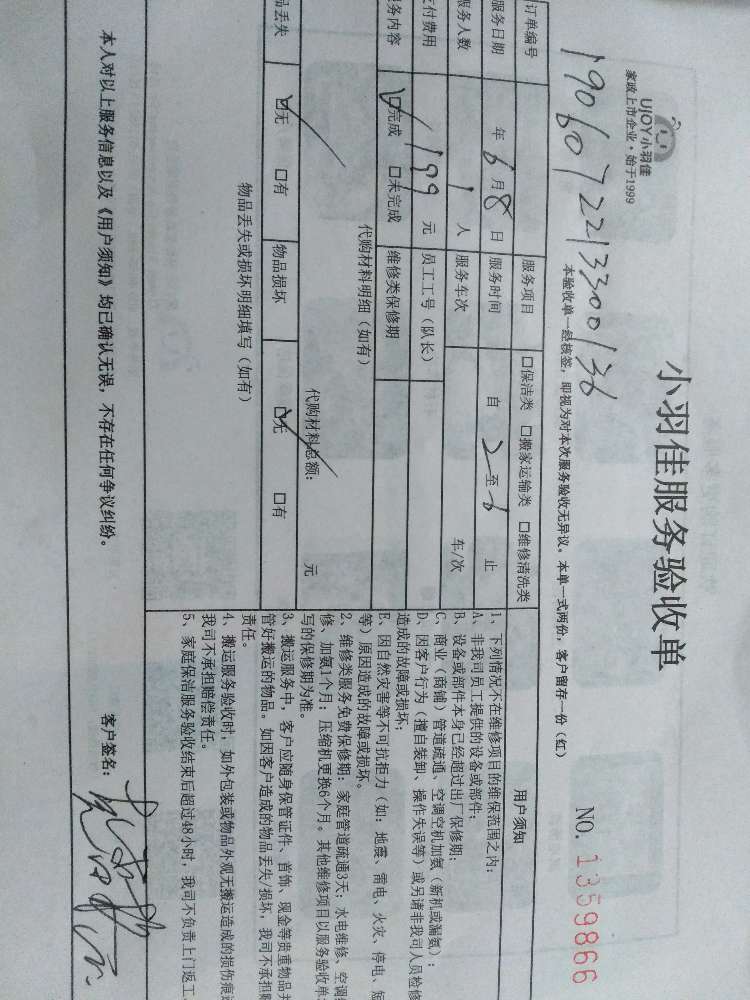 UJOY小羽佳
家政上市企业·始于1999
小羽佳服务验收单
NO. 1359866
190607221330013
本验收单一经核签,即视为对本次服务验收无异议。本单一式两份,客户留存一份(红)
订单编号
服务项目 □保洁类 □搬家运输类 □维修清洗类
服务日期 年 6 月 8 日 服务时间 自 2 至 6 止
服务人数 1 人 服务车次 车/次
支付费用 199 元 员工工号(队长)
服务内容 ☑完成 □未完成 维修类保修期
代购材料明细(如有)
代购材料总额: 元
品丢失 ☑无 □有 物品损坏 ☑无 □有
物品丢失或损坏明细填写(如有)
用户须知
1、下列情况不在维修项目的维保范围之内:
A、非我司员工提供的设备或部件;
B、设备或部件本身已经超过出厂保修期;
C、商业(商铺)管道疏通、空调空机加氨(新机或漏氨);
D、因客户行为(擅自装卸、操作失误等)或另请非我司人员检修
造成的故障或损坏;
E、因自然灾害等不可抗拒力(如:地震、雷电、火灾、停电、短
等)原因造成的故障或损坏。
2、维修类服务免费保修期:家庭管道疏通3天;水电维修、空调
修、加氨1个月;压缩机更换6个月。其他维修项目以服务验收单
写的保修期为准。
3、搬运服务中,客户应随身保管证件、首饰、现金等贵重物品并
管好搬运的物品。如因客户造成的物品丢失/损坏,我司不承担赔
责任。
4、搬运服务验收时,如外包装或物品外观无搬运造成的损伤痕迹
我司不承担赔偿责任。
5、家庭保洁服务验收结束后超过48小时,我司不负责上门返工。
本人对以上服务信息以及《用户须知》均已确认无误,不存在任何争议纠纷。
客户签名: